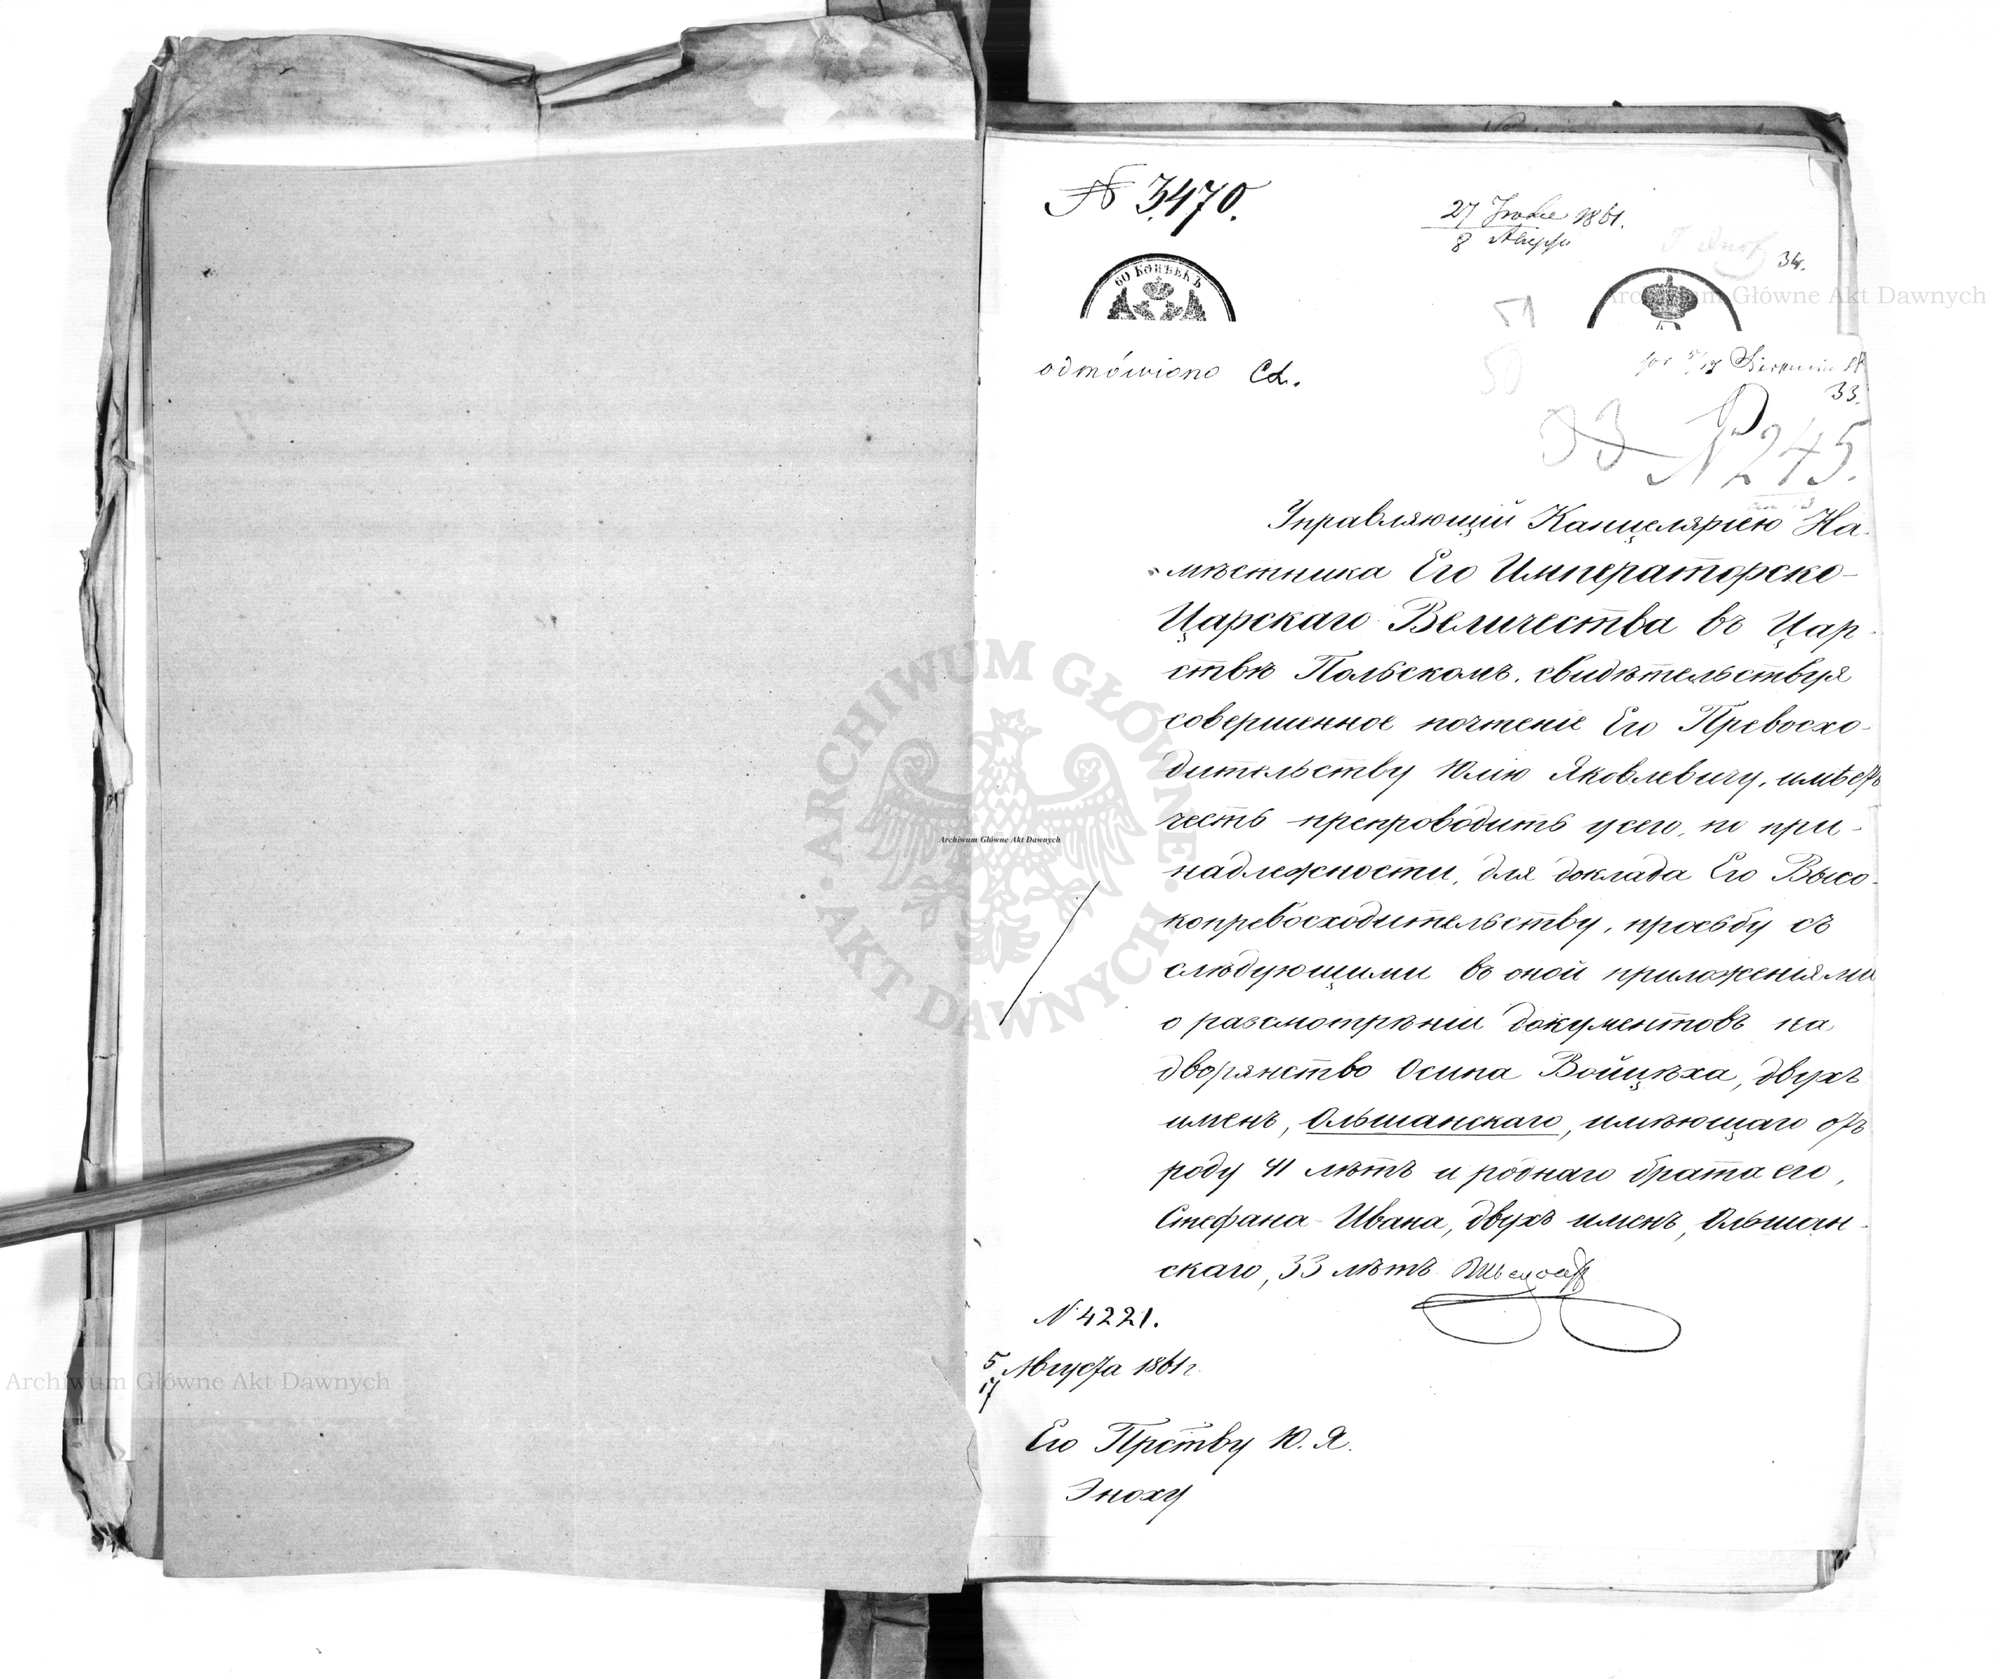 № 3470.
27 1861.
8
34.
60 КОПѢЕКЪ
odmówiono
51
50
33.
33 № 245.
Управляющій Канцеляріею На-
мѣстника Его Императорско-
Царскаго Величества въ Цар-
ствѣ Польскомъ, свидѣтельствуя
совершенное почтеніе Его Превосхо-
дительству Юлію Яковлевичу, имѣетъ
честь препроводить у сего, по при-
надлежности, для доклада Его Высо-
копревосходительству, просьбу съ
слѣдующими въ оной приложеніями
о разсмотрѣніи документовъ на
дворянство Осипа Войцѣха, двухъ
именъ, Ольшанскаго, имѣющаго отъ
роду 41 лѣтъ и роднаго брата его,
Стефана-Ивана, двухъ именъ, Ольшан-
скаго, 33 лѣтъ.
№ 4221.
5/17 Августа 1861 г.
Его Прству Ю. Я.
Эноху
Archiwum Główne Akt Dawnych
ARCHIWUM GŁÓWNE AKT DAWNYCH
Archiwum Główne Akt Dawnych
Archiwum Główne Akt Dawnych